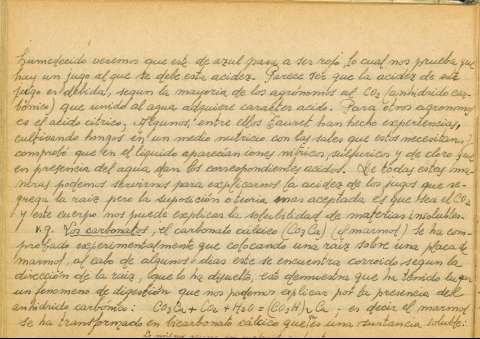 humedecido veremos que este de azul pasa a ser rojo lo cual nos prueba que
hay un jugo al que se debe esta acidez. Parece ser que la acidez de este
jugo es debida, segun la mayoría de los agrónomos al CO2 (anhidrido car-
bónico) que unido al agua adquiere caracter acido. Para otros agronomos
es el acido citrico, Algunos, entre ellos Lauret han hecho experiencias,
cultivando hongos en un medio nutricio con las sales que estos necesitan, y
comprobó que en el liquido aparecían iones nítricos, sulfuricos y de cloro que
en presencia del agua dan los correspondientes acidos. De todas estas ma-
neras podemos servirnos para explicarnos la acidez de los jugos que se-
grega la raiz pero la suposición o teoria mas aceptada es que sea el CO2
y este cuerpo nos puede explicar la solubilidad de materias insolubles.
v.g. Los carbonatos, el carbonato cálcico (CO3Ca) (el marmol) se ha com-
probado experimentalmente que colocando una raiz sobre una placa de
marmol, al cabo de algunos dias este se encuentra corroido segun la
dirección de la raiz, que lo ha disuelto, esto demuestra que ha tenido lugar
un fenomeno de digestión que nos podemos explicar por la presencia del
anhidrido carbónico: CO3Ca + CO2 + H2O = (CO3H)2Ca; es decir el marmol
se ha transformado en bicarbonato cálcico que es una sustancia soluble.